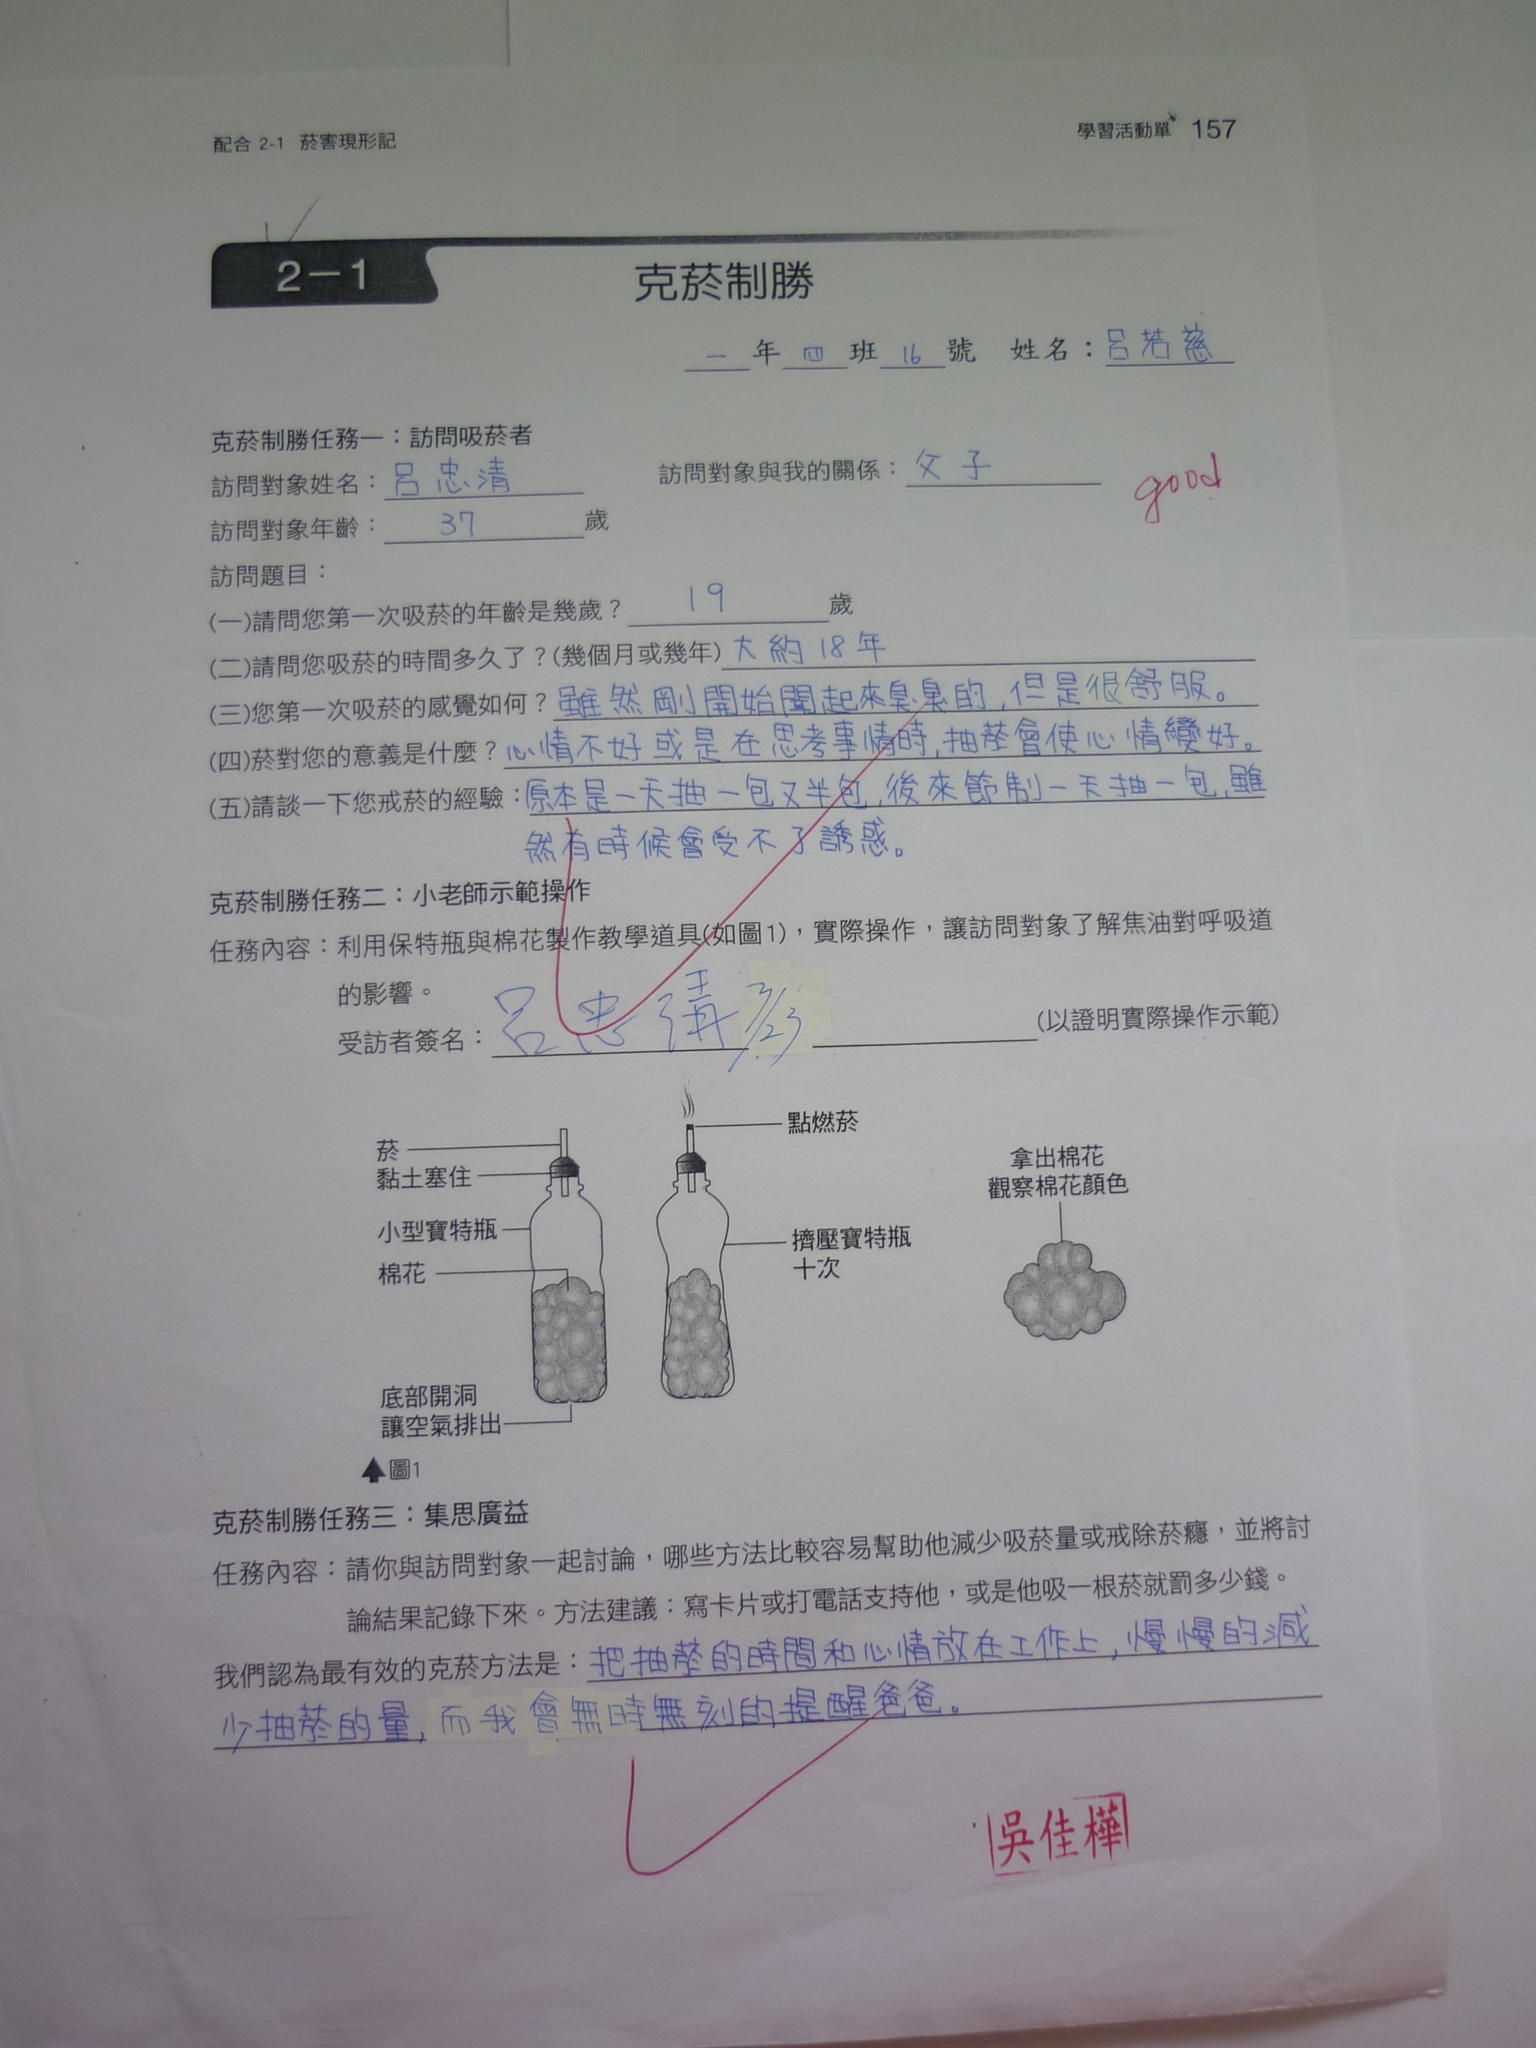 配合 2-1 菸害現形記
學習活動單 157
2－1
克菸制勝
一年四班16號 姓名：呂若慈
克菸制勝任務一：訪問吸菸者
訪問對象姓名：呂忠清 訪問對象與我的關係：父子
good
訪問對象年齡：37歲
訪問題目：
(一)請問您第一次吸菸的年齡是幾歲？19歲
(二)請問您吸菸的時間多久了？(幾個月或幾年)大約18年
(三)您第一次吸菸的感覺如何？雖然剛開始聞起來臭臭的,但是很舒服。
(四)菸對您的意義是什麼？心情不好或是在思考事情時,抽菸會使心情變好。
(五)請談一下您戒菸的經驗：原本是一天抽一包又半包,後來節制一天抽一包,雖
然有時候會受不了誘惑。
克菸制勝任務二：小老師示範操作
任務內容：利用保特瓶與棉花製作教學道具(如圖1)，實際操作，讓訪問對象了解焦油對呼吸道
的影響。
受訪者簽名：呂忠清 3/23 (以證明實際操作示範)
菸
黏土塞住
小型寶特瓶
棉花
底部開洞
讓空氣排出
點燃菸
擠壓寶特瓶
十次
拿出棉花
觀察棉花顏色
圖1
克菸制勝任務三：集思廣益
任務內容：請你與訪問對象一起討論，哪些方法比較容易幫助他減少吸菸量或戒除菸癮，並將討
論結果記錄下來。方法建議：寫卡片或打電話支持他，或是他吸一根菸就罰多少錢。
我們認為最有效的克菸方法是：把抽菸的時間和心情放在工作上,慢慢的減
少抽菸的量,而我會無時無刻的提醒爸爸。
吳佳樺